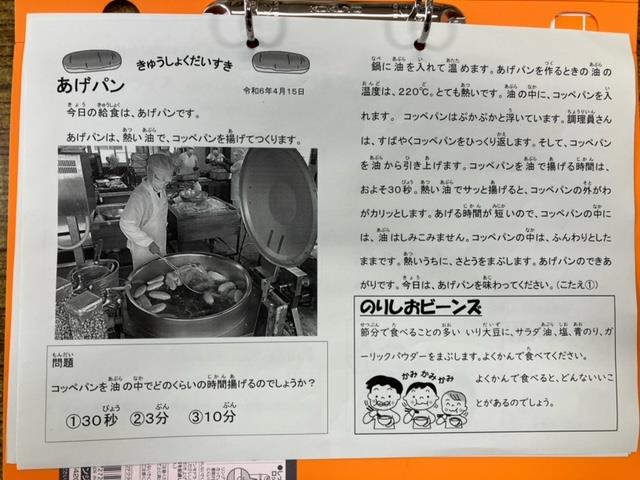 きゅうしょくだいすき
あげパン
令和6年4月15日
今日の給食は、あげパンです。
あげパンは、熱い油で、コッペパンを揚げてつくります。
問題
コッペパンを油の中でどのくらいの時間揚げるのでしょうか？
①30秒 ②3分 ③10分
鍋に油を入れて温めます。あげパンを作るときの油の
温度は、220℃。とても熱いです。油の中に、コッペパンを入
れます。コッペパンはぷかぷかと浮いています。調理員さん
は、すばやくコッペパンをひっくり返します。そして、コッペパン
を油から引き上げます。コッペパンを油で揚げる時間は、
およそ30秒。熱い油でサッと揚げると、コッペパンの外がわ
がカリッとします。あげる時間が短いので、コッペパンの中に
は、油はしみこみません。コッペパンの中は、ふんわりとした
ままです。熱いうちに、さとうをまぶします。あげパンのできあ
がりです。今日は、あげパンを味わってください。(こたえ①)
のりしおビーンズ
節分で食べることの多い いり大豆に、サラダ油、塩、青のり、ガ
ーリックパウダーをまぶします。よくかんで食べてください。
よくかんで食べると、どんないいこ
とがあるのでしょう。
かみ かみ かみ